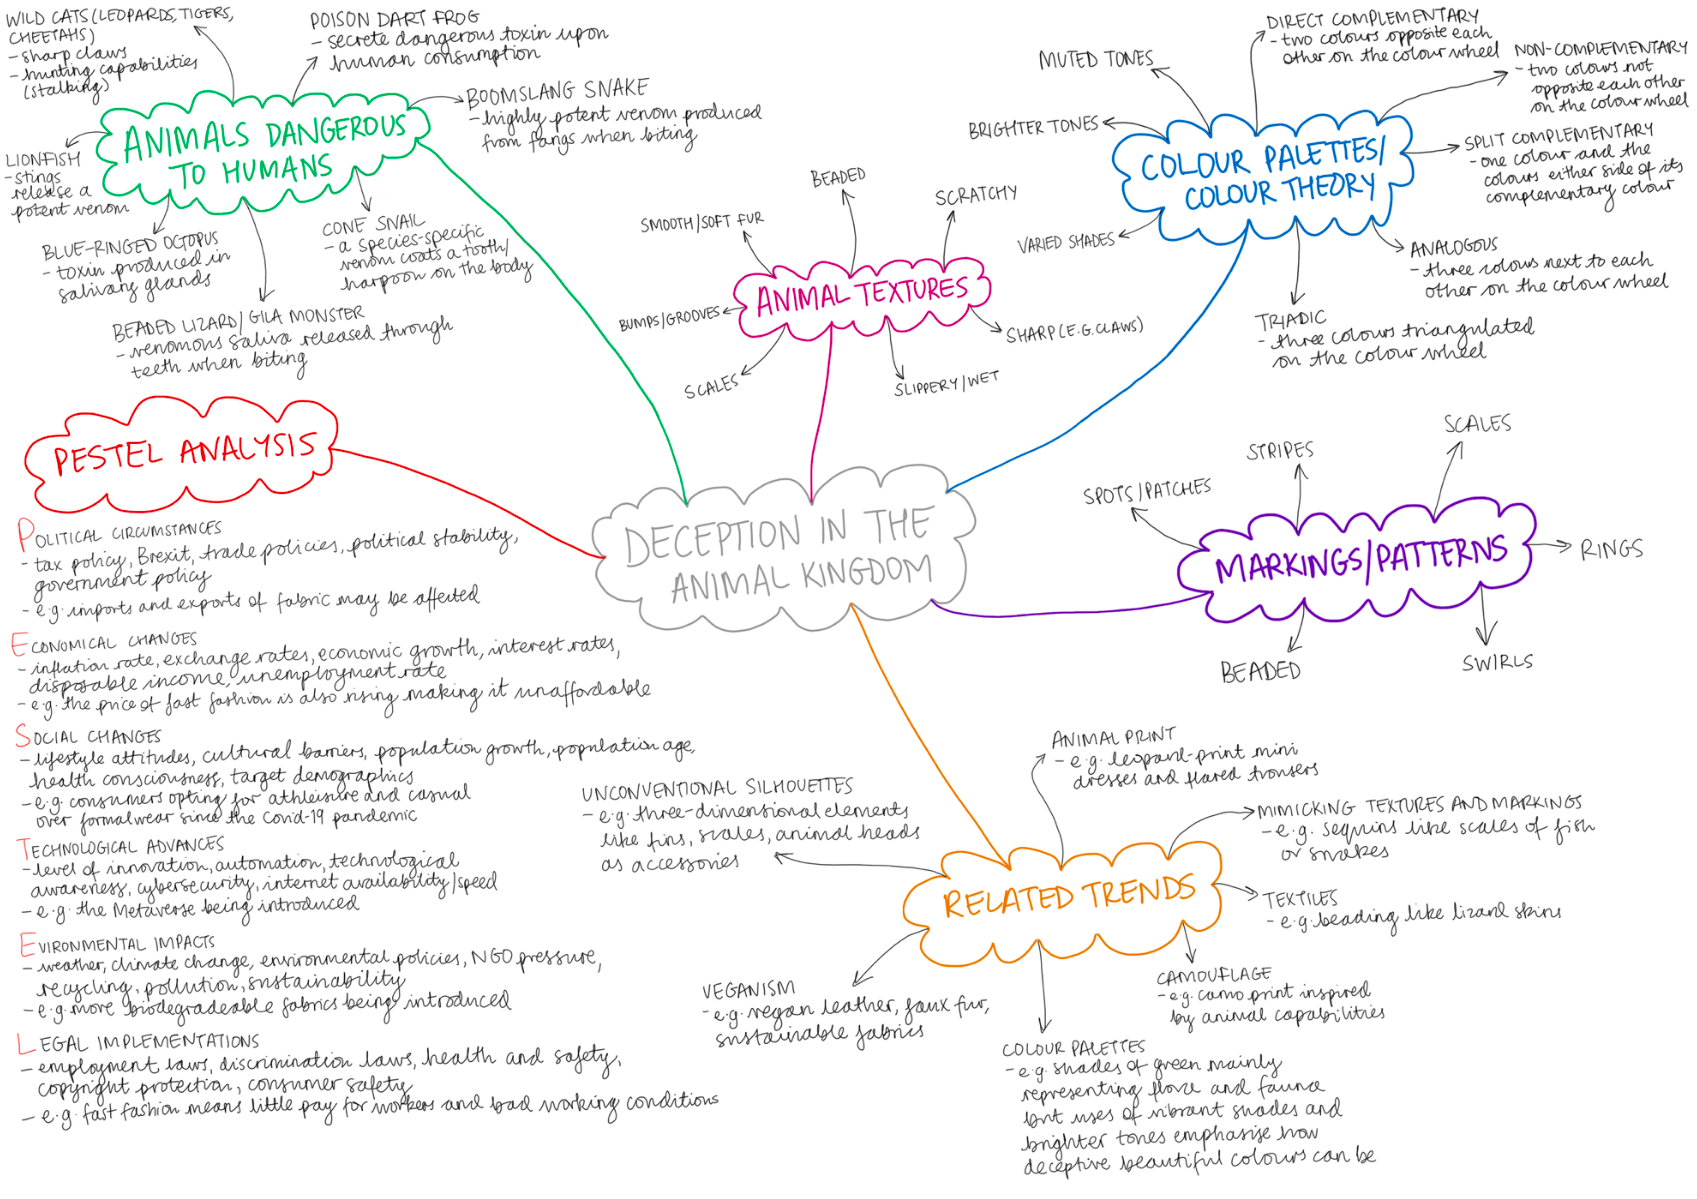 WILD CATS (LEOPARDS, TIGERS,
CHEETAHS)
- sharp claws
- hunting capabilities
(stalking)
POISON DART FROG
- secrete dangerous toxin upon
human consumption
BOOMSLANG SNAKE
- highly potent venom produced
from fangs when biting
ANIMALS DANGEROUS
TO HUMANS
LIONFISH
- stings
release a
potent venom
BLUE-RINGED OCTOPUS
- toxin produced in
salivary glands
CONE SNAIL
- a species-specific
venom coats a tooth/
harpoon on the body
BEADED LIZARD/GILA MONSTER
- venomous saliva released through
teeth when biting
BEADED
SCRATCHY
SMOOTH/SOFT FUR
ANIMAL TEXTURES
BUMPS/GROOVES
SHARP (E.G. CLAWS)
SCALES
SLIPPERY/WET
MUTED TONES
DIRECT COMPLEMENTARY
- two colours opposite each
other on the colour wheel
NON-COMPLEMENTARY
- two colours not
opposite each other
on the colour wheel
BRIGHTER TONES
COLOUR PALETTES/
COLOUR THEORY
SPLIT COMPLEMENTARY
- one colour and the
colours either side of its
complementary colour
VARIED SHADES
ANALOGOUS
- three colours next to each
other on the colour wheel
TRIADIC
- three colours triangulated
on the colour wheel
PESTEL ANALYSIS
DECEPTION IN THE
ANIMAL KINGDOM
SPOTS/PATCHES
STRIPES
SCALES
MARKINGS/PATTERNS
RINGS
BEADED
SWIRLS
POLITICAL CIRCUMSTANCES
- tax policy, Brexit, trade policies, political stability,
government policy
- e.g. imports and exports of fabric may be affected
ECONOMICAL CHANGES
- inflation rate, exchange rates, economic growth, interest rates,
disposable income, unemployment rate
- e.g. the price of fast fashion is also rising making it unaffordable
SOCIAL CHANGES
- lifestyle attitudes, cultural barriers, population growth, population age,
health consciousness, target demographics
- e.g. consumers opting for athleisure and casual
over formalwear since the Covid-19 pandemic
TECHNOLOGICAL ADVANCES
- level of innovation, automation, technological
awareness, cybersecurity, internet availability/speed
- e.g. the Metaverse being introduced
EVIRONMENTAL IMPACTS
- weather, climate change, environmental policies, NGO pressure,
recycling, pollution, sustainability
- e.g. more biodegradeable fabrics being introduced
LEGAL IMPLEMENTATIONS
- employment laws, discrimination laws, health and safety,
copyright protection, consumer safety
- e.g. fast fashion means little pay for workers and bad working conditions
UNCONVENTIONAL SILHOUETTES
- e.g. three-dimensional elements
like fins, scales, animal heads
as accessories
ANIMAL PRINT
- e.g. leopard-print mini
dresses and flared trousers
MIMICKING TEXTURES AND MARKINGS
- e.g. sequins like scales of fish
or snakes
RELATED TRENDS
TEXTILES
- e.g. beading like lizard skins
CAMOUFLAGE
- e.g. camo print inspired
by animal capabilities
VEGANISM
- e.g. vegan leather, faux fur,
sustainable fabrics
COLOUR PALETTES
- e.g. shades of green mainly
representing flora and fauna
but uses of vibrant shades and
brighter tones emphasise how
deceptive beautiful colours can be